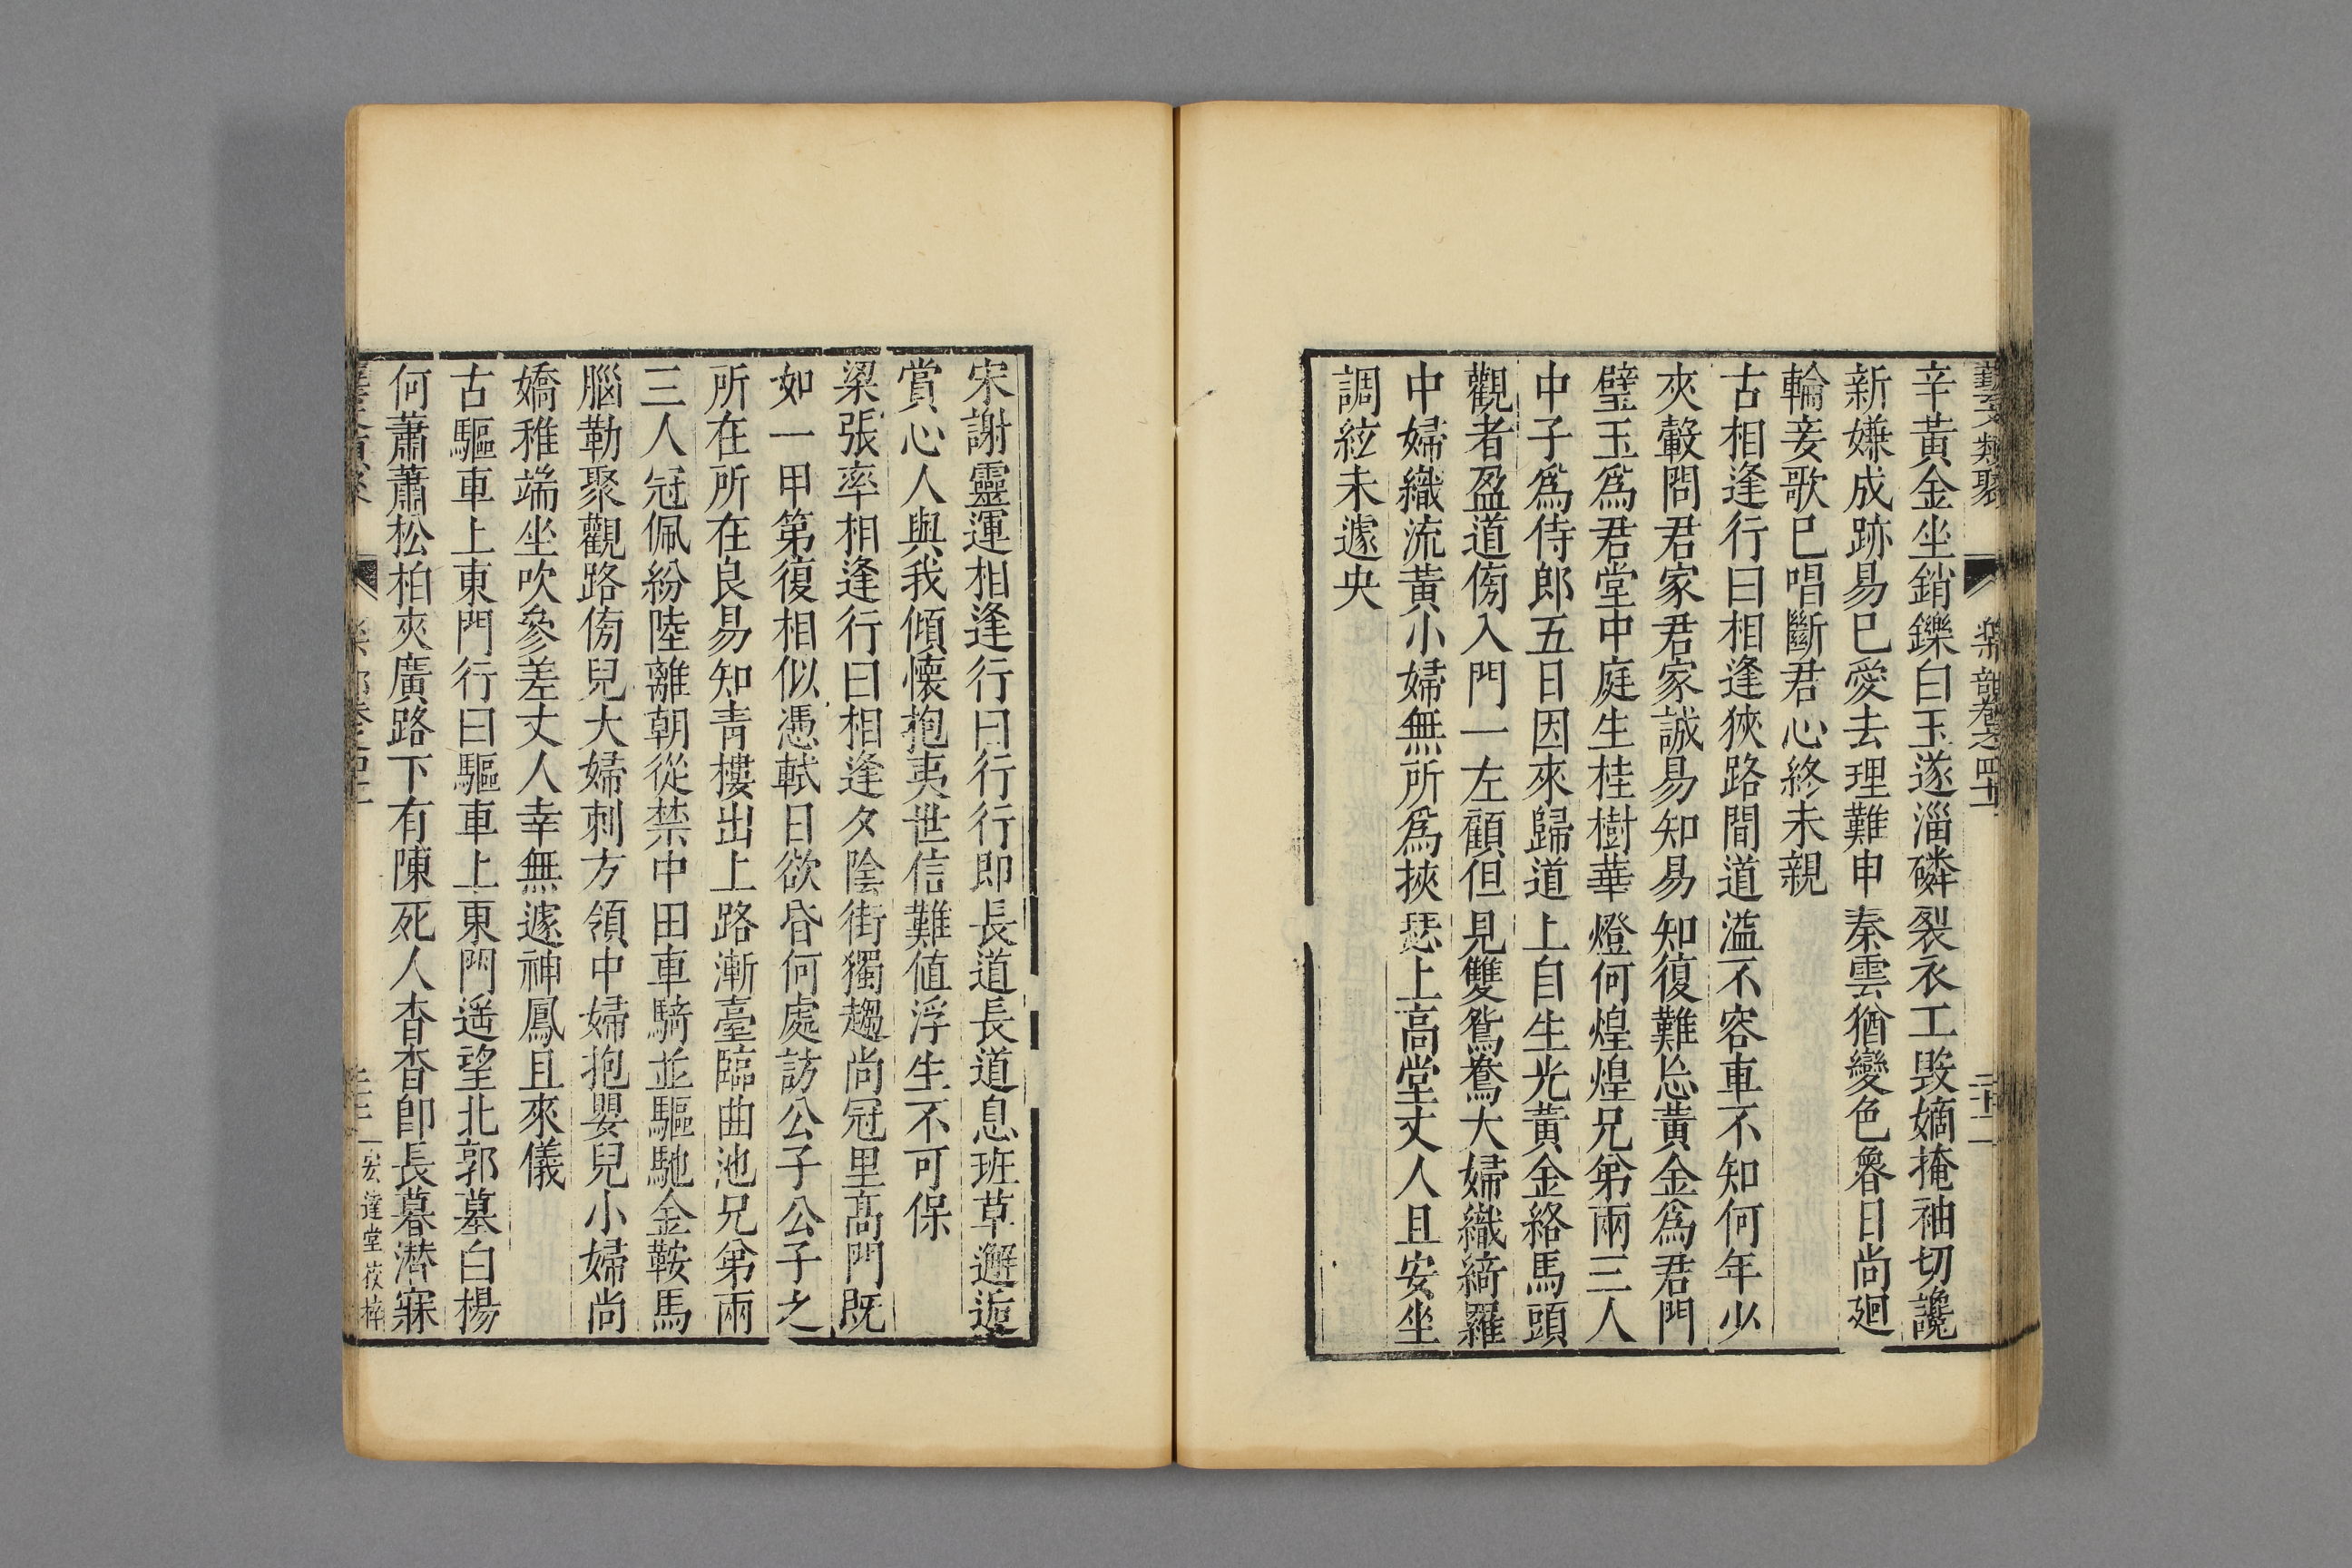 藝文類聚 樂部卷之四十一 二十二
辛黃金坐銷鑠白玉遂淄磷裂衣工毀嫡掩袖切讒
新嫌成跡易已愛去理難申秦雲猶變色魯日尚廻
輪妾歌已唱斷君心終未親
古相逢行曰相逢狹路間道溢不容車不知何年少
夾轂問君家君家誠易知易知復難忘黃金爲君門
璧玉爲君堂中庭生桂樹華燈何煌煌兄弟兩三人
中子爲侍郎五日因來歸道上自生光黃金絡馬頭
觀者盈道傍入門一左顧但見雙鴛鴦大婦織綺羅
中婦織流黃小婦無所爲挾瑟上高堂丈人且安坐
調絃未遽央
宋謝靈運相逢行曰行行即長道道長息班草邂逅
賞心人與我傾懷抱夷世信難値浮生不可保
梁張率相逢行曰相逢夕陰街獨趨尚冠里高門既
如一甲第復相似憑軾日欲昏何處訪公子公子之
所在所在良易知青樓出上路漸臺臨曲池兄弟兩
三人冠佩紛陸離朝從禁中田車騎並驅馳金鞍馬
腦勒聚觀路傍兒大婦刺方領中婦抱嬰兒小婦尚
嬌稚端坐吹參差丈人幸無遽神鳳且來儀
古驅車上東門行曰驅車上東門遙望北郭墓白楊
何蕭蕭松柏夾廣路下有陳死人杳杳卽長暮潜寐
宏達堂校梓